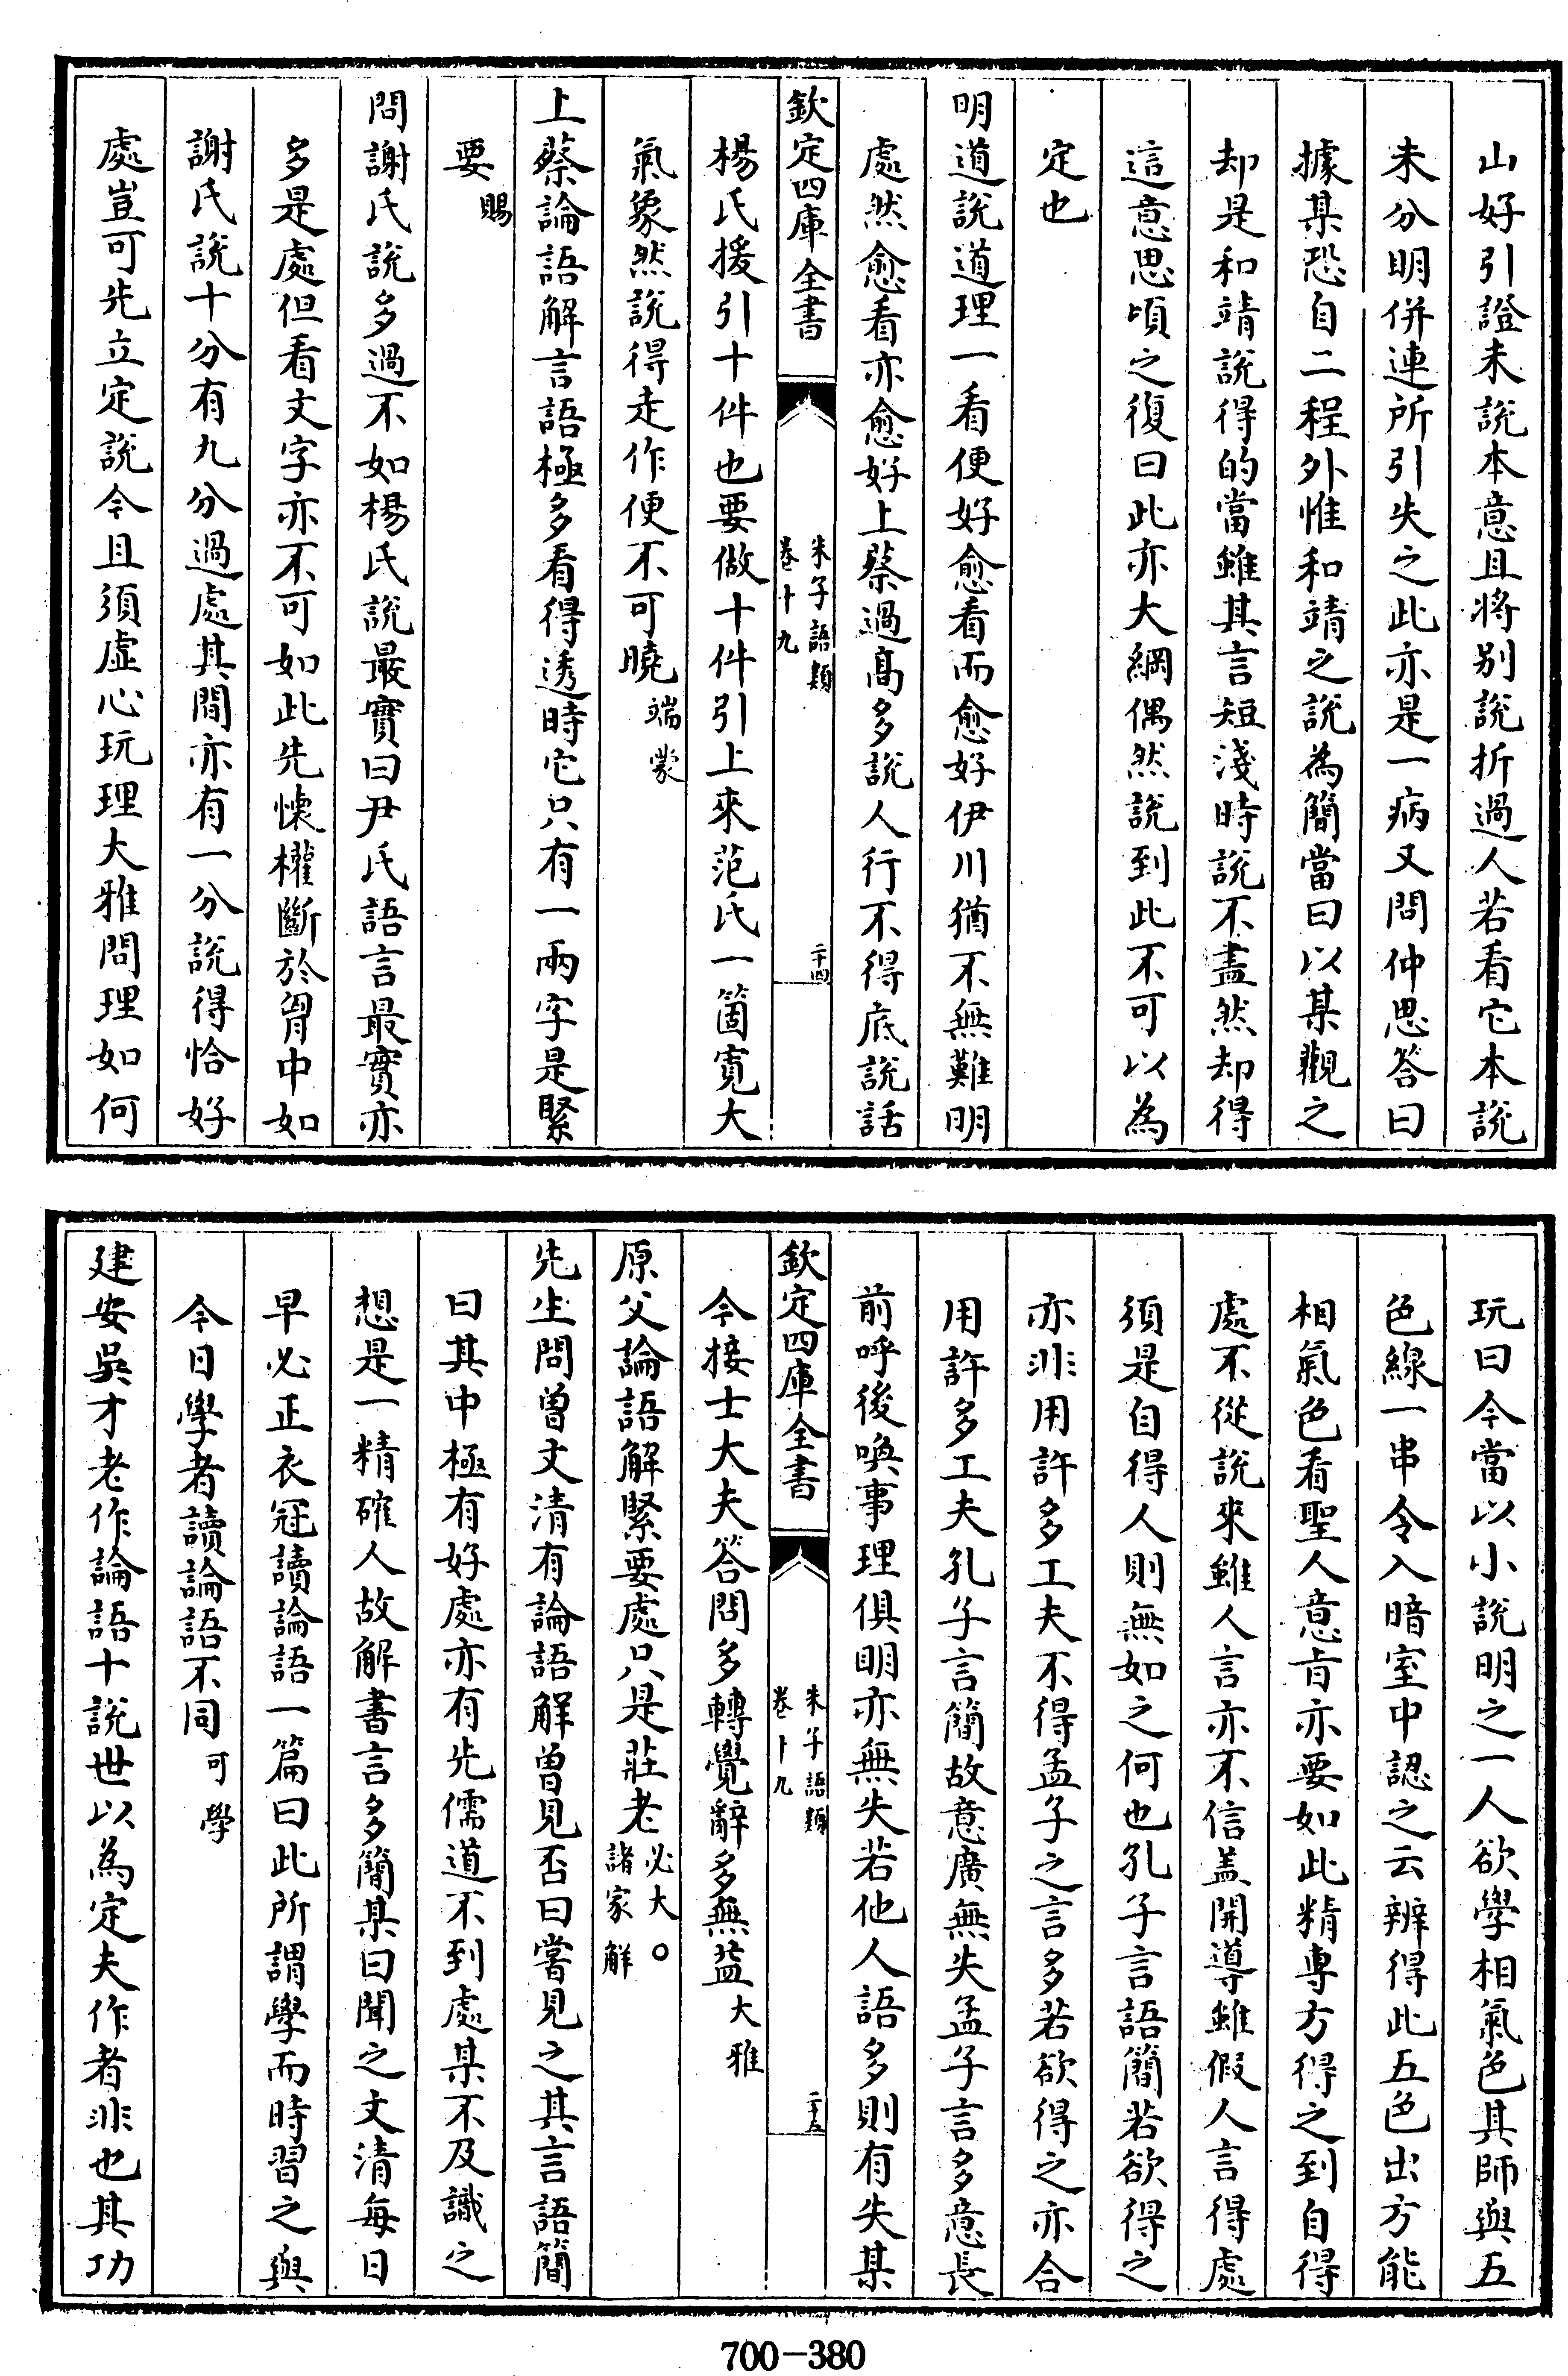 山好引證未説本意且將别説折過人若看它本説
未分明併連所引失之此亦是一病又問仲思答曰
據某恐自二程外惟和靖之説為簡當曰以某觀之
却是和靖説得的當雖其言短淺時説不盡然却得
這意思頃之復曰此亦大綱偶然説到此不可以為
定也
明道説道理一看便好愈看而愈好伊川猶不無難明
處然愈看亦愈好上蔡過高多説人行不得底説話
欽定四庫全書
朱子語類
卷十九
二十四
楊氏援引十件也要做十件引上來范氏一箇寛大
氣象然説得走作便不可曉端蒙
上蔡論語解言語極多看得透時它只有一兩字是緊
要賜
問謝氏説多過不如楊氏説最實曰尹氏語言最實亦
多是處但看文字亦不可如此先懷權斷於胷中如
謝氏説十分有九分過處其間亦有一分説得恰好
處豈可先立定説今且須虚心玩理大雅問理如何
玩曰今當以小説明之一人欲學相氣色其師與五
色線一串令入暗室中認之云辨得此五色出方能
相氣色看聖人意㫖亦要如此精専方得之到自得
處不從説來雖人言亦不信盖開導雖假人言得處
須是自得人則無如之何也孔子言語簡若欲得之
亦非用許多工夫不得孟子之言多若欲得之亦合
用許多工夫孔子言簡故意廣無失孟子言多意長
前呼後喚事理俱明亦無失若他人語多則有失某
欽定四庫全書
朱子語類
卷十九
二十五
今接士大夫答問多轉覺辭多無益大雅
原父論語解緊要處只是莊老必大○
諸家解
先生問曽文清有論語解曽見否曰嘗見之其言語簡
曰其中極有好處亦有先儒道不到處某不及識之
想是一精確人故解書言多簡某曰聞之文清每日
早必正衣冠讀論語一篇曰此所謂學而時習之與
今日學者讀論語不同可學
建安吳才老作論語十説世以為定夫作者非也其功
700-380